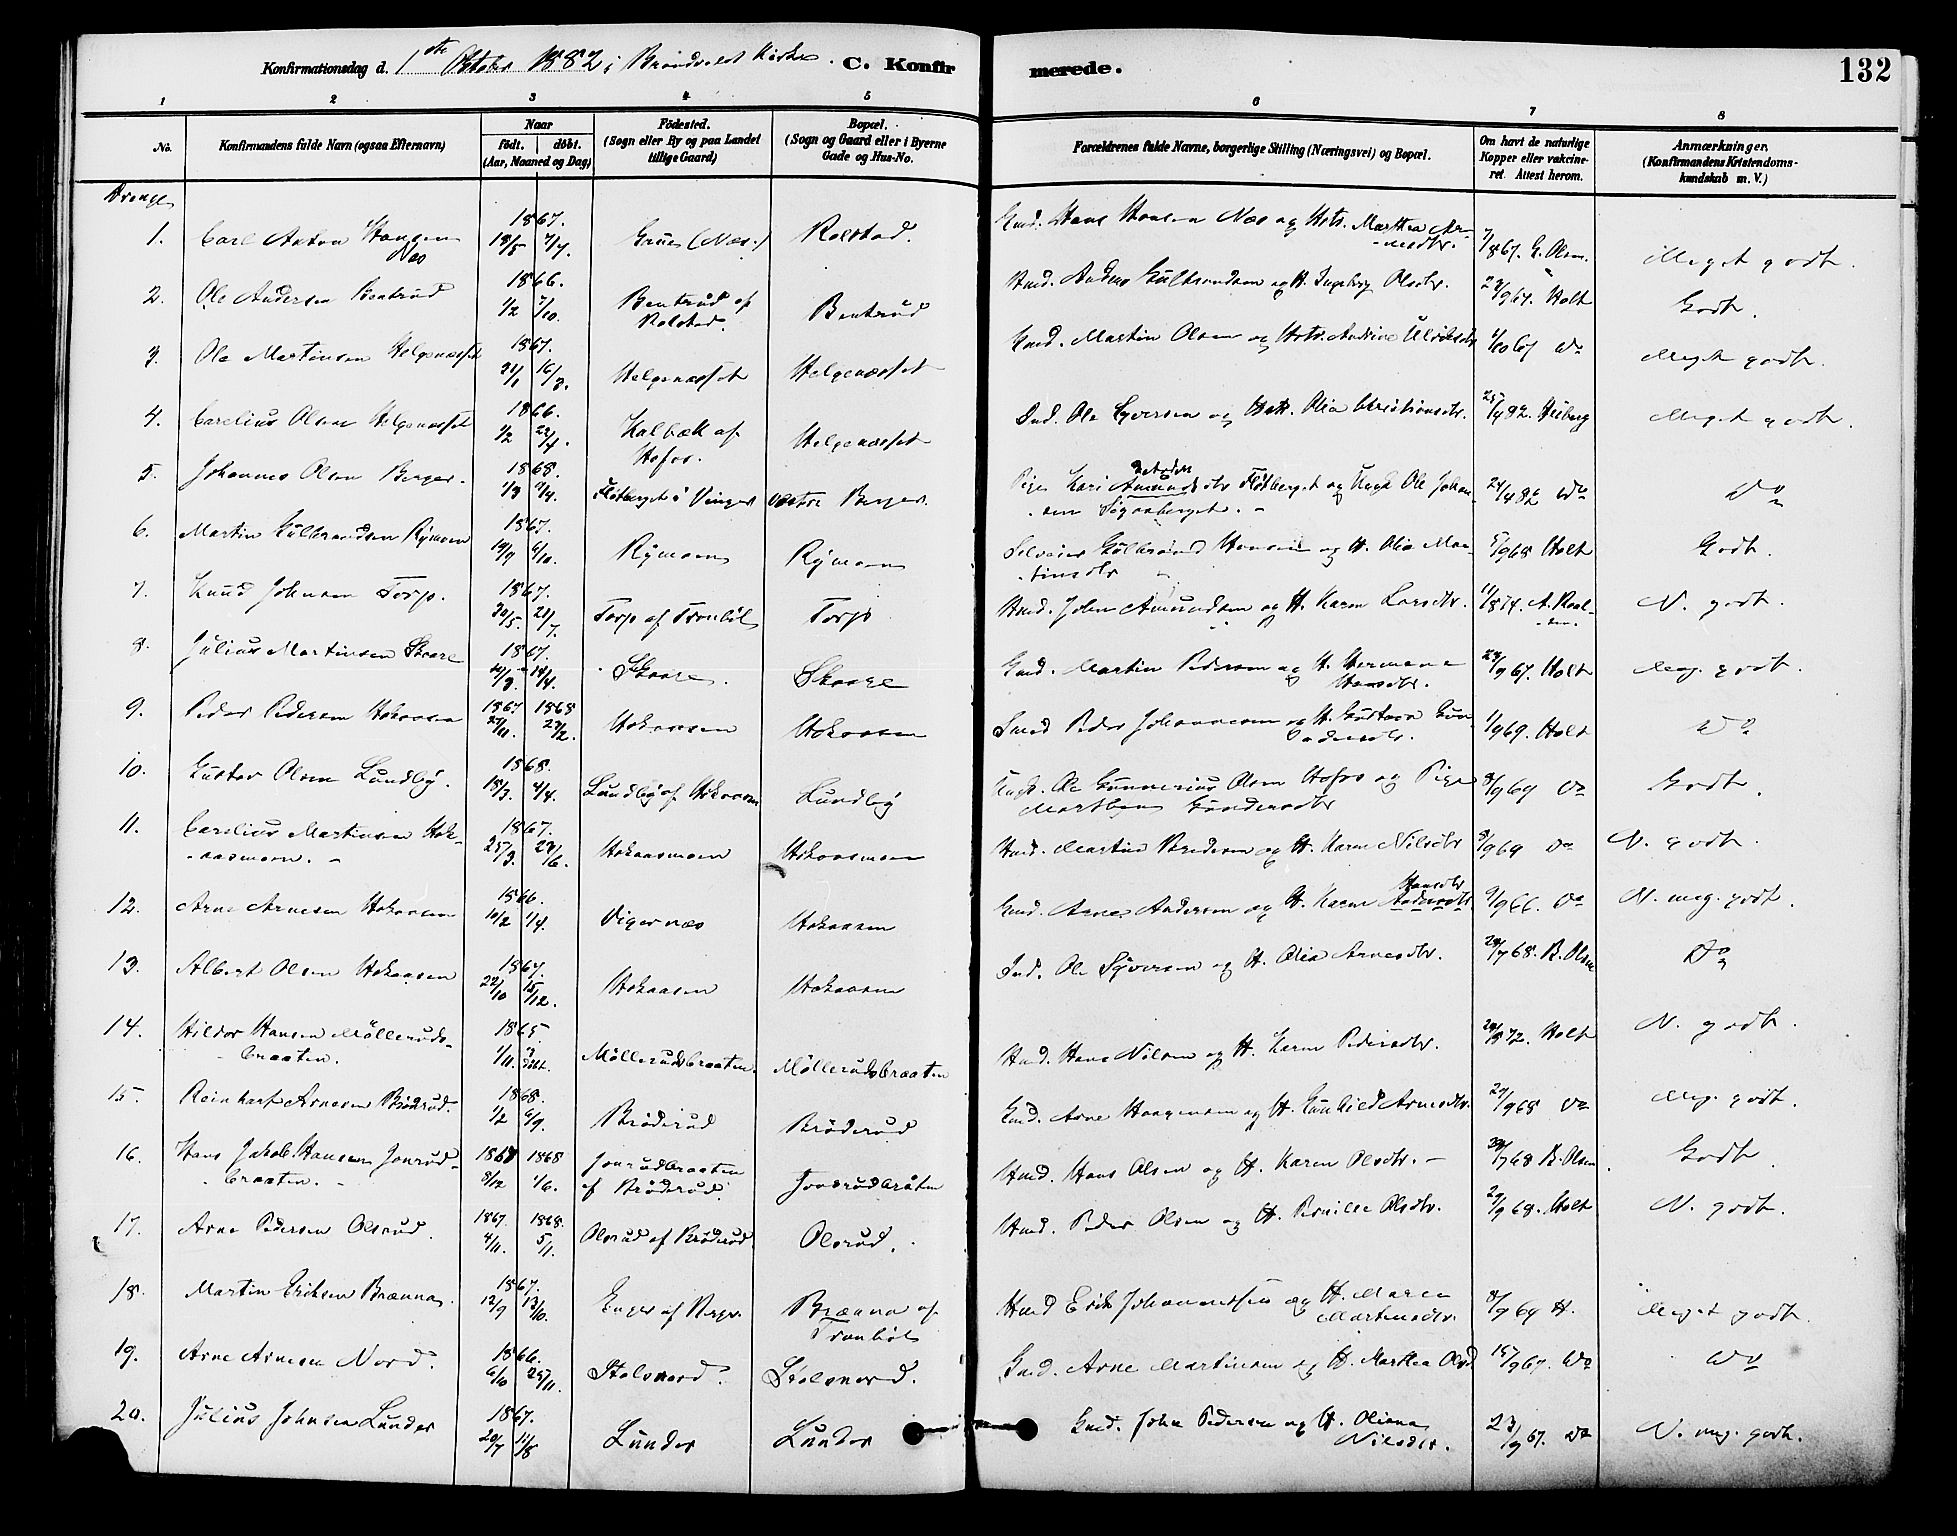 Konfirmationsdag d. 1ste Oktober 1882 i Brandvold Kirke. C. Konfir merede. 132
1 2 3 4 5 6 7 8
No. Konfirmandens fulde Navn (ogsaa Efternavn) Naar født. døbt. (Aar, Maaned og Dag) Fødested. (Sogn eller By og paa Landet tillige Gaard) Bopæl. (Sogn og Gaard eller i Byerne Gade og Hus-No. Forældrenes fulde Navne, borgerlige Stilling (Næringsvei) og Bopæl. Om havt de naturlige Kopper eller vakcineret. Attest herom. Anmærkninger. (Konfirmandens Kristendomskundskab m. V.)
Drenge
1. Carl Anton Hansen Næs 1867. 18/5 7/7. Grue (Næs) Rolstad. Gmd. Hans Hansen Næs og Hstr. Marthea Arnesdtr. 7/867. G. Olsen. Meget godt.
2. Ole Andersen Bentrud 1866. 1/2 7/10. Bentrud af Rolstad. Bentrud Hmd. Anders Gulbrandsen og H. Ingeborg Olsdtr. 23/967. Holt Godt.
3. Ole Martinsen Helgenæsset 1867. 31/1 16/3. Helgenæsset Helgenæsset Gmd. Martin Olsen og Hstr. Andrine Ulriksdtr 1/1067 Do Meget godt.
4. Carelius Olsen Helgenæsset 1866. 1/2 22/4. Kalbæk af Hofos. Helgenæsset Ind. Ole Syversen og Hstr. Olia Christiansdtr. 25/482. Heiberg Meget godt.
5. Johannes Olsen Berger. 1868. 1/3 7/4. Fløtberget i Vinger Vestre Berger. Pige Kari Amundsdtr Fløtberget og Ungk. Ole Johansen Signaberget. 24/482 Do Do
6. Martin Gulbrandsen Rymoen 1867. 19/9 6/10. Rymoen Rymoen Selveier Gulbrand Hansen og H. Olia Martinsdtr 5/968 Holt Godt.
7. Knud Johnsen Torp. 1867. 30/5. 21/7. Torp af Tronbøl Torp Hmd. John Amundsen og H. Karen Larsdtr. 11/874. N. godt.
8. Julius Martinsen Skaare 1867. 14/4. Skaare. Skaare Gmd. Martin Pedersen og H. Hermane Hansdtr. 23/967. Holt Meg. godt.
9. Peder Pedersen Hokaasen 1867 1868 27/11. 23/2. Hokaasen Hokaasen Smed Peder Johannesen og H. Gustava Gundersdtr. 1/969. Holt Do
10. Gustav Olsen Lundby. 1868. 18/3. 4/4. Lundby af Hokaasen Lundby Ungk. Ole Gunnerius Olsen Hofos og Pige Marthea Gundersdtr 8/969 Do Godt.
11. Carelius Martinsen Hokaasmoen. 1867. 25/3. 24/6. Hokaasmoen Hokaasmoen Hmd. Martin Pedersen og H. Karen Nilsdtr 8/969 Do N. godt.
12. Arne Arnesen Hokaasen 1866. 10/2 1/4. Vigernæs Hokaasen Gmd. Arne Andersen og H. Karen Hansdtr Andersdtr. 9/966. Do N. meg. godt.
13. Albert Olsen Hokaasen 1867. 22/10 15/12. Hokaasen Hokaasen Ind. Ole Syversen og H. Olia Arnesdtr. 29/768. B. Olsen Do
14. Hildor Hansen Møllerudsbraaten. 1865. 1/11. Møllerudsbraaten. Møllerudsbraaten Hmd. Hans Nilsen og H. Karen Pedersdtr. 872. Holt N. godt.
15. Reinhart Arnesen Brøderud. 1868. 1/2 6/9. Brøderud Brøderud Gmd. Arne Haagensen og H. Gunhild Arnesdtr. 27/968 Do Meg. godt.
16. Hans Jakob Hansen Jonrudbraaten. 1867 1868 8/12 1/6. Jonrudbraaten af Brøderud. Jonsrudbråten Hmd. Hans Olsen og H. Karen Olsdtr. 768 B. Olsen Godt.
17. Arne Pedersen Olsrud. 1867. 1868. 4/11. 5/1. Olsrud af Brøderud. Olsrud. Hmd. Peder Olsen og H. Pernille Olsdtr. 27/968. Holt N. godt.
18. Martin Eriksen Brænna. 1867. 12/9 13/10. Enger af Berger Brænna af Tronbøl Hmd Erik Johannessen og H. Maren Martinsdtr. 8/969 H. Meget godt
19. Arne Arnesen Nord. 1866. 6/10 25/11. Stolsnord. Stolsnord. Gmd. Arne Martinsen og H. Marthea Olsd 15/967. Do Do
20. Julius Johnsen Lunder 1867. 20/7 11/8 Lunder Lunder Gmd. John Pedersen og H. Oliana Nilsdtr. 23/967. Do N. meg. godt.